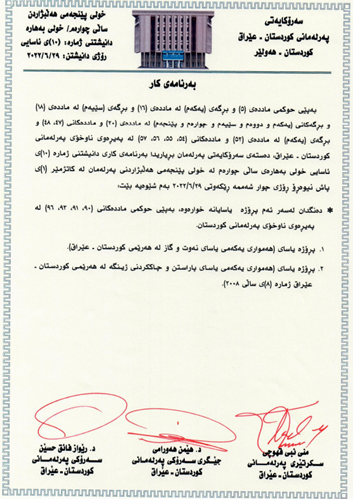 سەرۆکایەتی
پەرلەمانی کوردستان - عێراق
کوردستان - هەولێر
خولی پێنجەمی هەڵبژاردن
ساڵی چوارەم/ خولی بەهارە
دانیشتنی ژمارە: (١٠)ی ئاسایی
رۆژی دانیشتن: ٢٠٢٢/٦/٢٩
بەرنامەی کار
بەپێی حوکمی ماددەی (٥) و بڕگەی (یەکەم) لە ماددەی (١٦) و بڕگەی (سێیەم) لە ماددەی (١٨)
و بڕگەکانی (یەکەم و دووەم و سێیەم و چوارەم و پێنجەم) لە ماددەی (٢٠) و ماددەکانی (٤٧، ٤٨) و
بڕگەی (یەکەم) لە ماددەی (٥٢) و ماددەکانی (٥٤، ٥٥، ٥٦، ٥٧) لە پەیڕەوی ناوخۆی پەرلەمانی
کوردستان - عێراق، دەستەی سەرۆکایەتی پەرلەمان بڕیاریدا بەرنامەی کاری دانیشتنی ژمارە (١٠)ی
ئاسایی خولی بەهارەی ساڵی چوارەم لە خولی پێنجەمی هەڵبژاردنی پەرلەمان لە کاتژمێر (١)ی
پاش نیوەڕۆ رۆژی چوار شەممە رێکەوتی ٢٠٢٢/٦/٢٩ بەم شێوەیە بێت:
* دەنگدان لەسەر ئەم پرۆژە یاسایانە خوارەوە، بەپێی حوکمی ماددەکانی (٩٠، ٩١، ٩٣، ٩٦) لە
پەیڕەوی ناوخۆی پەرلەمانی کوردستان.
١. پرۆژە یاسای (هەمواری یەکەمی یاسای نەوت و گاز لە هەرێمی کوردستان - عێراق).
٢. پرۆژە یاسای (هەمواری یەکەمی یاسای پاراستن و چاککردنی ژینگە لە هەرێمی کوردستان -
عێراق ژمارە (٨)ی ساڵی ٢٠٠٨).
منی نبی قهوچی
سکرتێری پەرلەمانی
کوردستان - عێراق
د. هێمن هەورامی
جێگری سەرۆکی پەرلەمانی
کوردستان - عێراق
د. رێواز فائق حسێن
سەرۆکی پەرلەمانی
کوردستان - عێراق